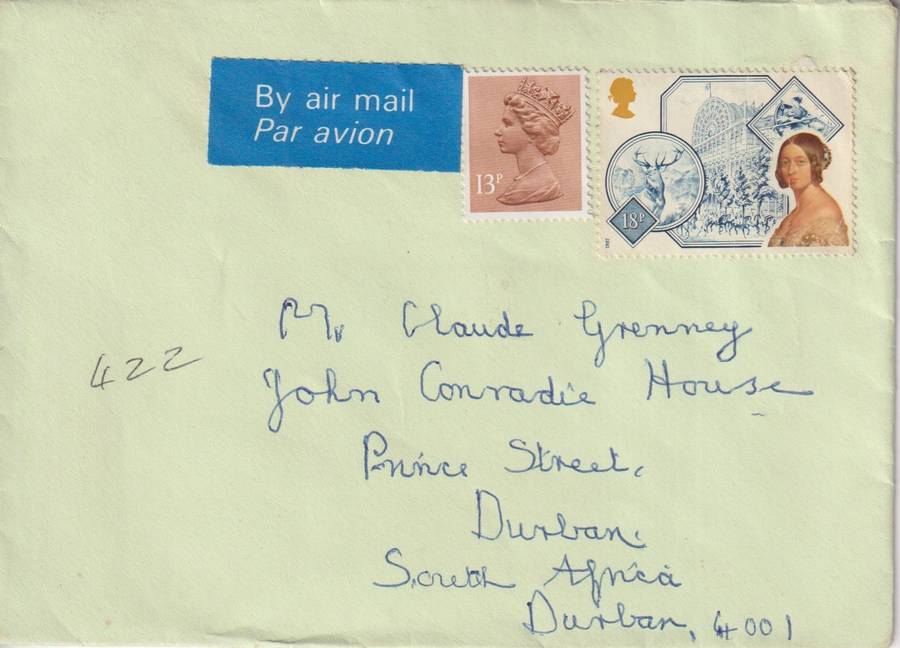 By air mail
Par avion
13P
18P
1987
422
Mr Claude Grenney
John Conradie House
Prince Street,
Durban.
South Africa
Durban, 4001